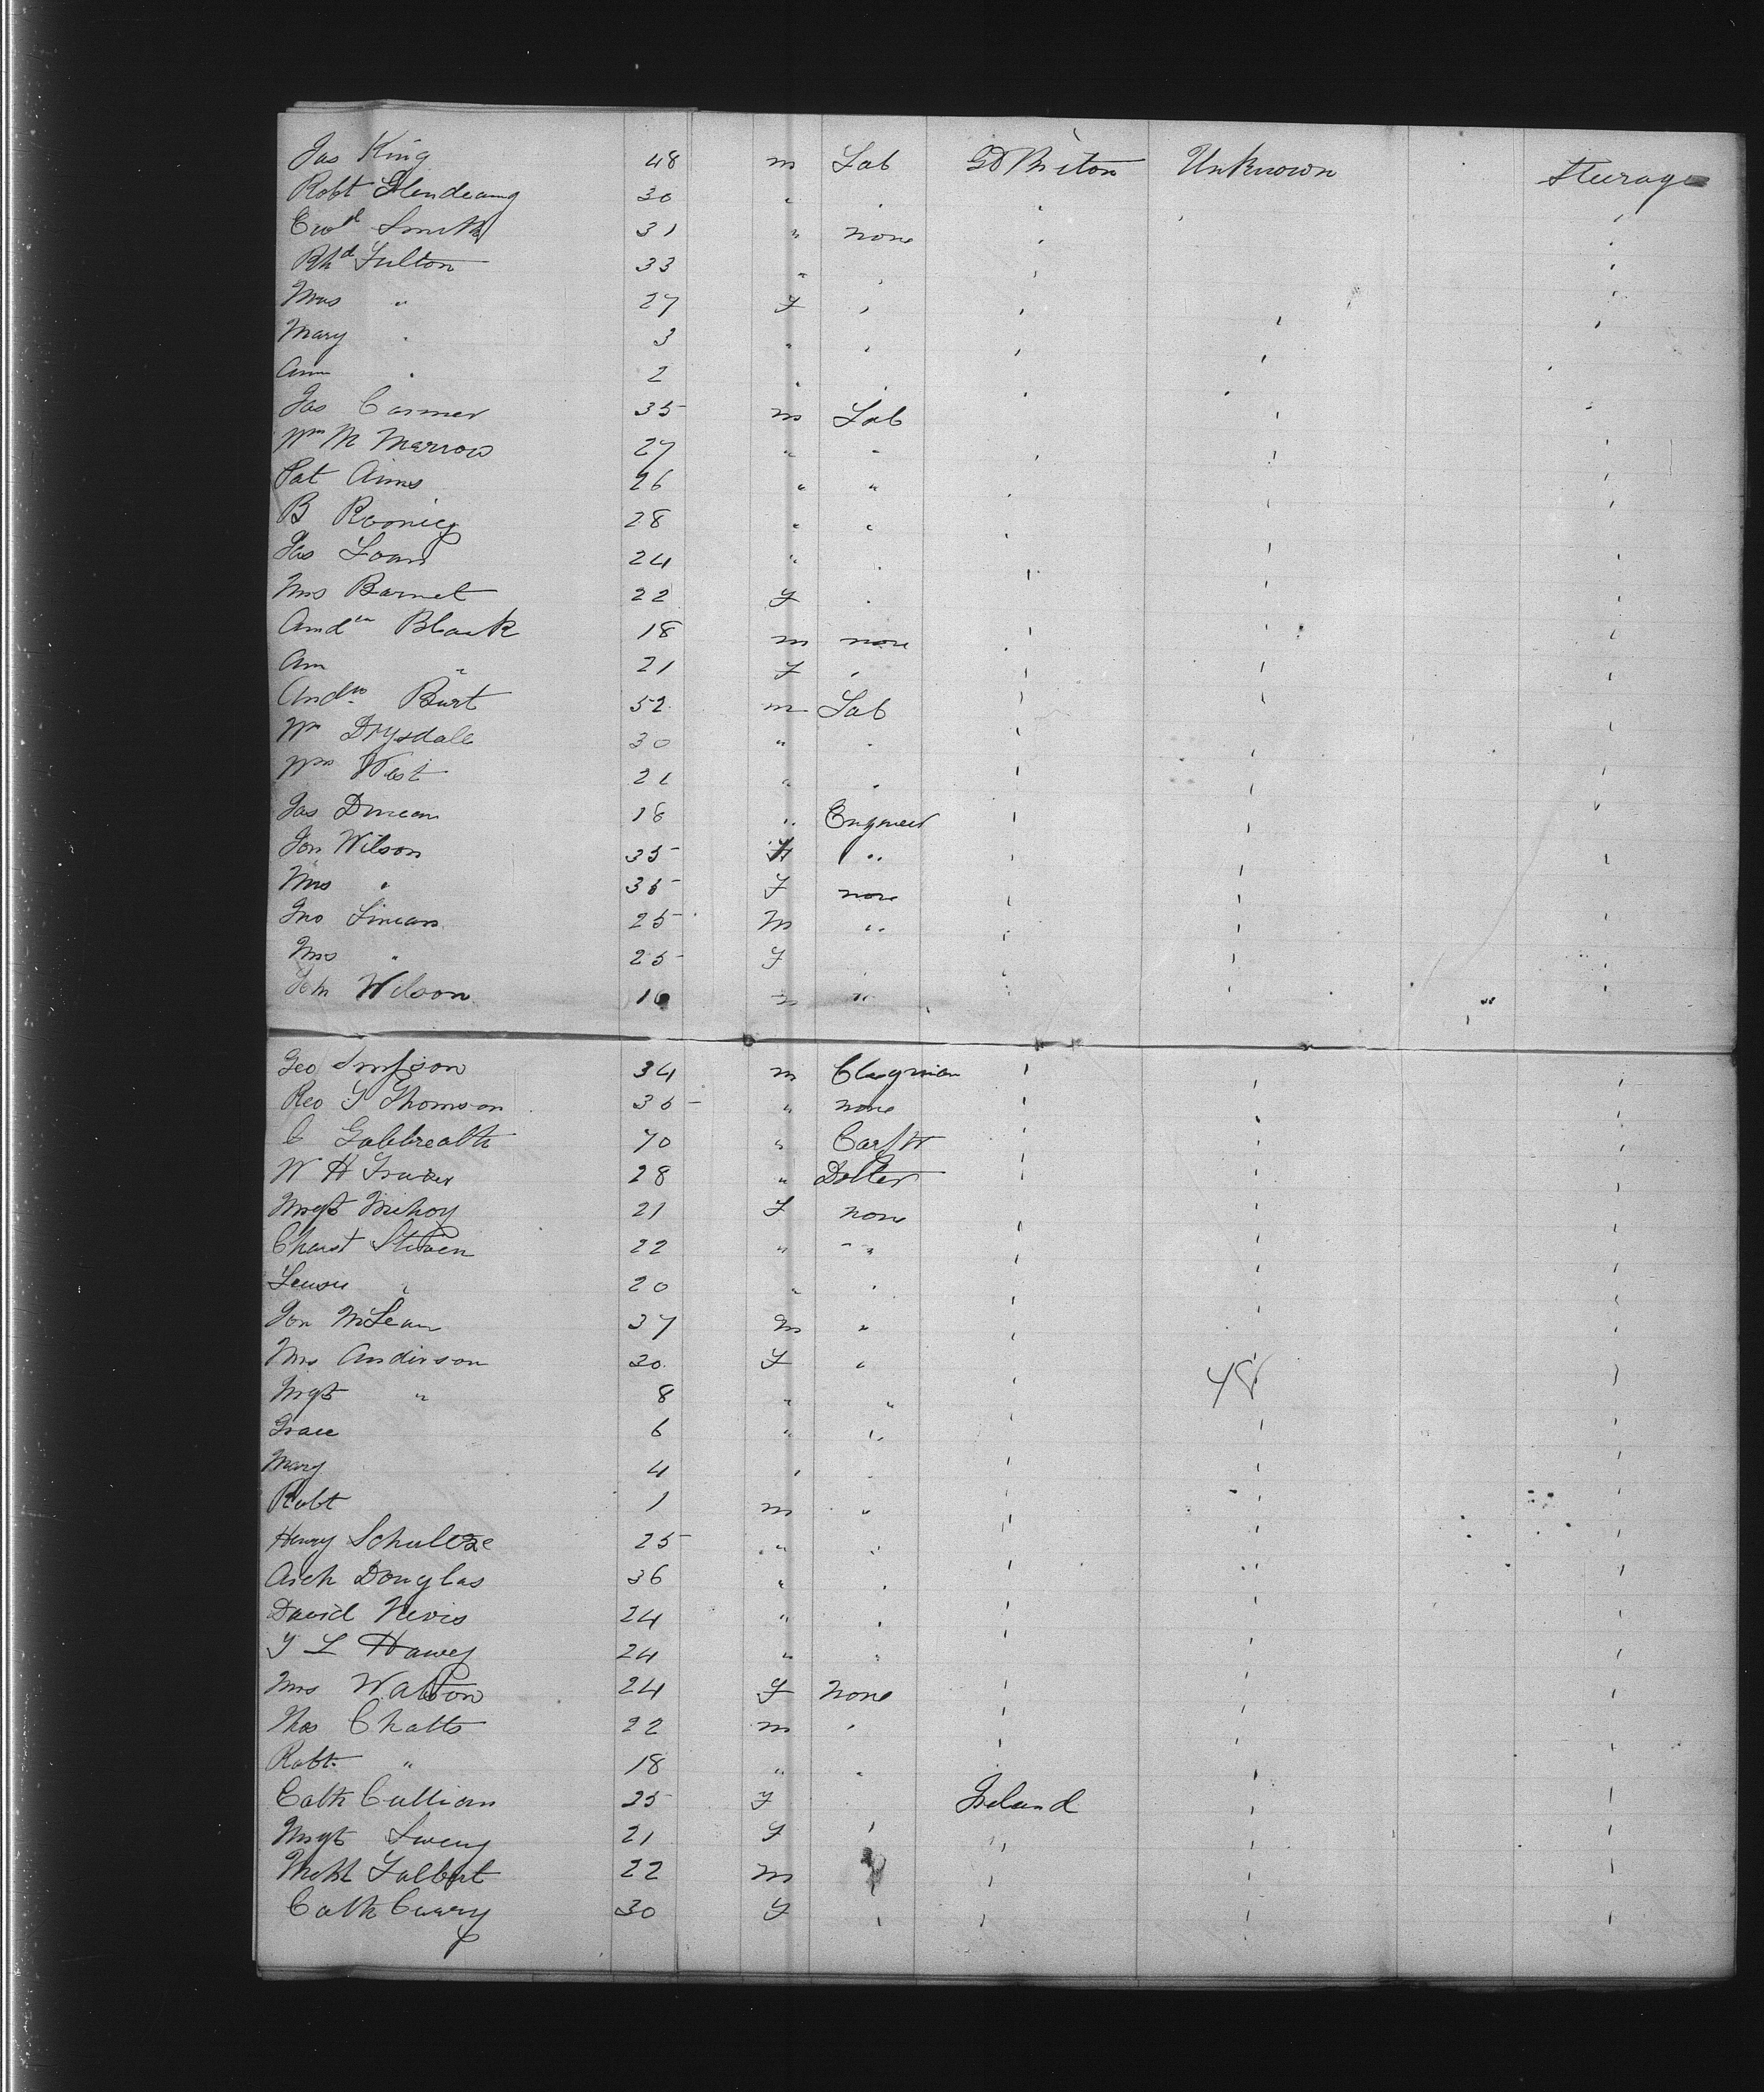 Jas King 48 m Lab Gt Briton Unknown Steerage
Robt Glendenning 30 " " " " "
Edwd Smith 31 " none " "
Rhd Fulton 33 " " " "
Mrs " 27 F " " "
Mary " 3 " " " " "
Ann " 2 " " " " "
Jas Carmer 35 m Lab " "
Wm M Marrow 27 " " " " "
Pat Aims 26 " " " " "
B Rooney 28 " " " " "
Jas Loan 24 " " " " "
Mrs Barnet 22 F " " " "
Andw Black 18 m none " " "
Ann " 21 F " " " "
Andw Burt 52 m Lab " " "
Wm Drysdale 30 " " " " "
Wm West 21 " " " " "
Jas Duncan 18 " Engineer " " "
Jon Wilson 35 " " " "
Mrs " 35 F none " "
Jno Simcan 25 m " " " "
Mrs " 25 F " " "
John Wilson 16 m " " " "
Geo Simpson 34 m Clagman " " "
Reo T Thomson 35 " none " " "
C Galbreath 70 " Carptr " " "
W H Frazer 28 " Dolter " " "
Mrgt Mehoy 21 F none " "
Christ Steven 22 " " " " "
" 20 " " " " "
Jon McLean 37 m " " " "
Mrs Anderson 30 F " " 48 "
Mrgt " 8 " " " "
Grace 6 " " " " "
Mary 4 " " " " "
Robt 1 m " " " "
Henry Schultze 25 " " " "
Arch Douglas 36 " " " " "
David Nevis 24 " " " " "
T L Hawey 24 " " " " "
Mrs Watson 24 F none " " "
Thos Chatts 22 m " " "
Robt " 18 " " " "
Cath Cullian 25 F Ireland " "
Mrgt Sweny 21 F " " " "
Michl Talbert 22 m " " " "
Cath Cuary 30 F " " " "